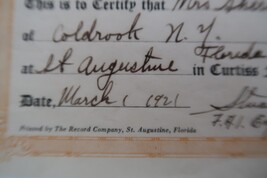 This is to Certify that Mrs
of Coldrook N. Y.
Florida
at St Augustine in Curtiss
Date, March 1 1921
Printed by The Record Company, St. Augustine, Florida